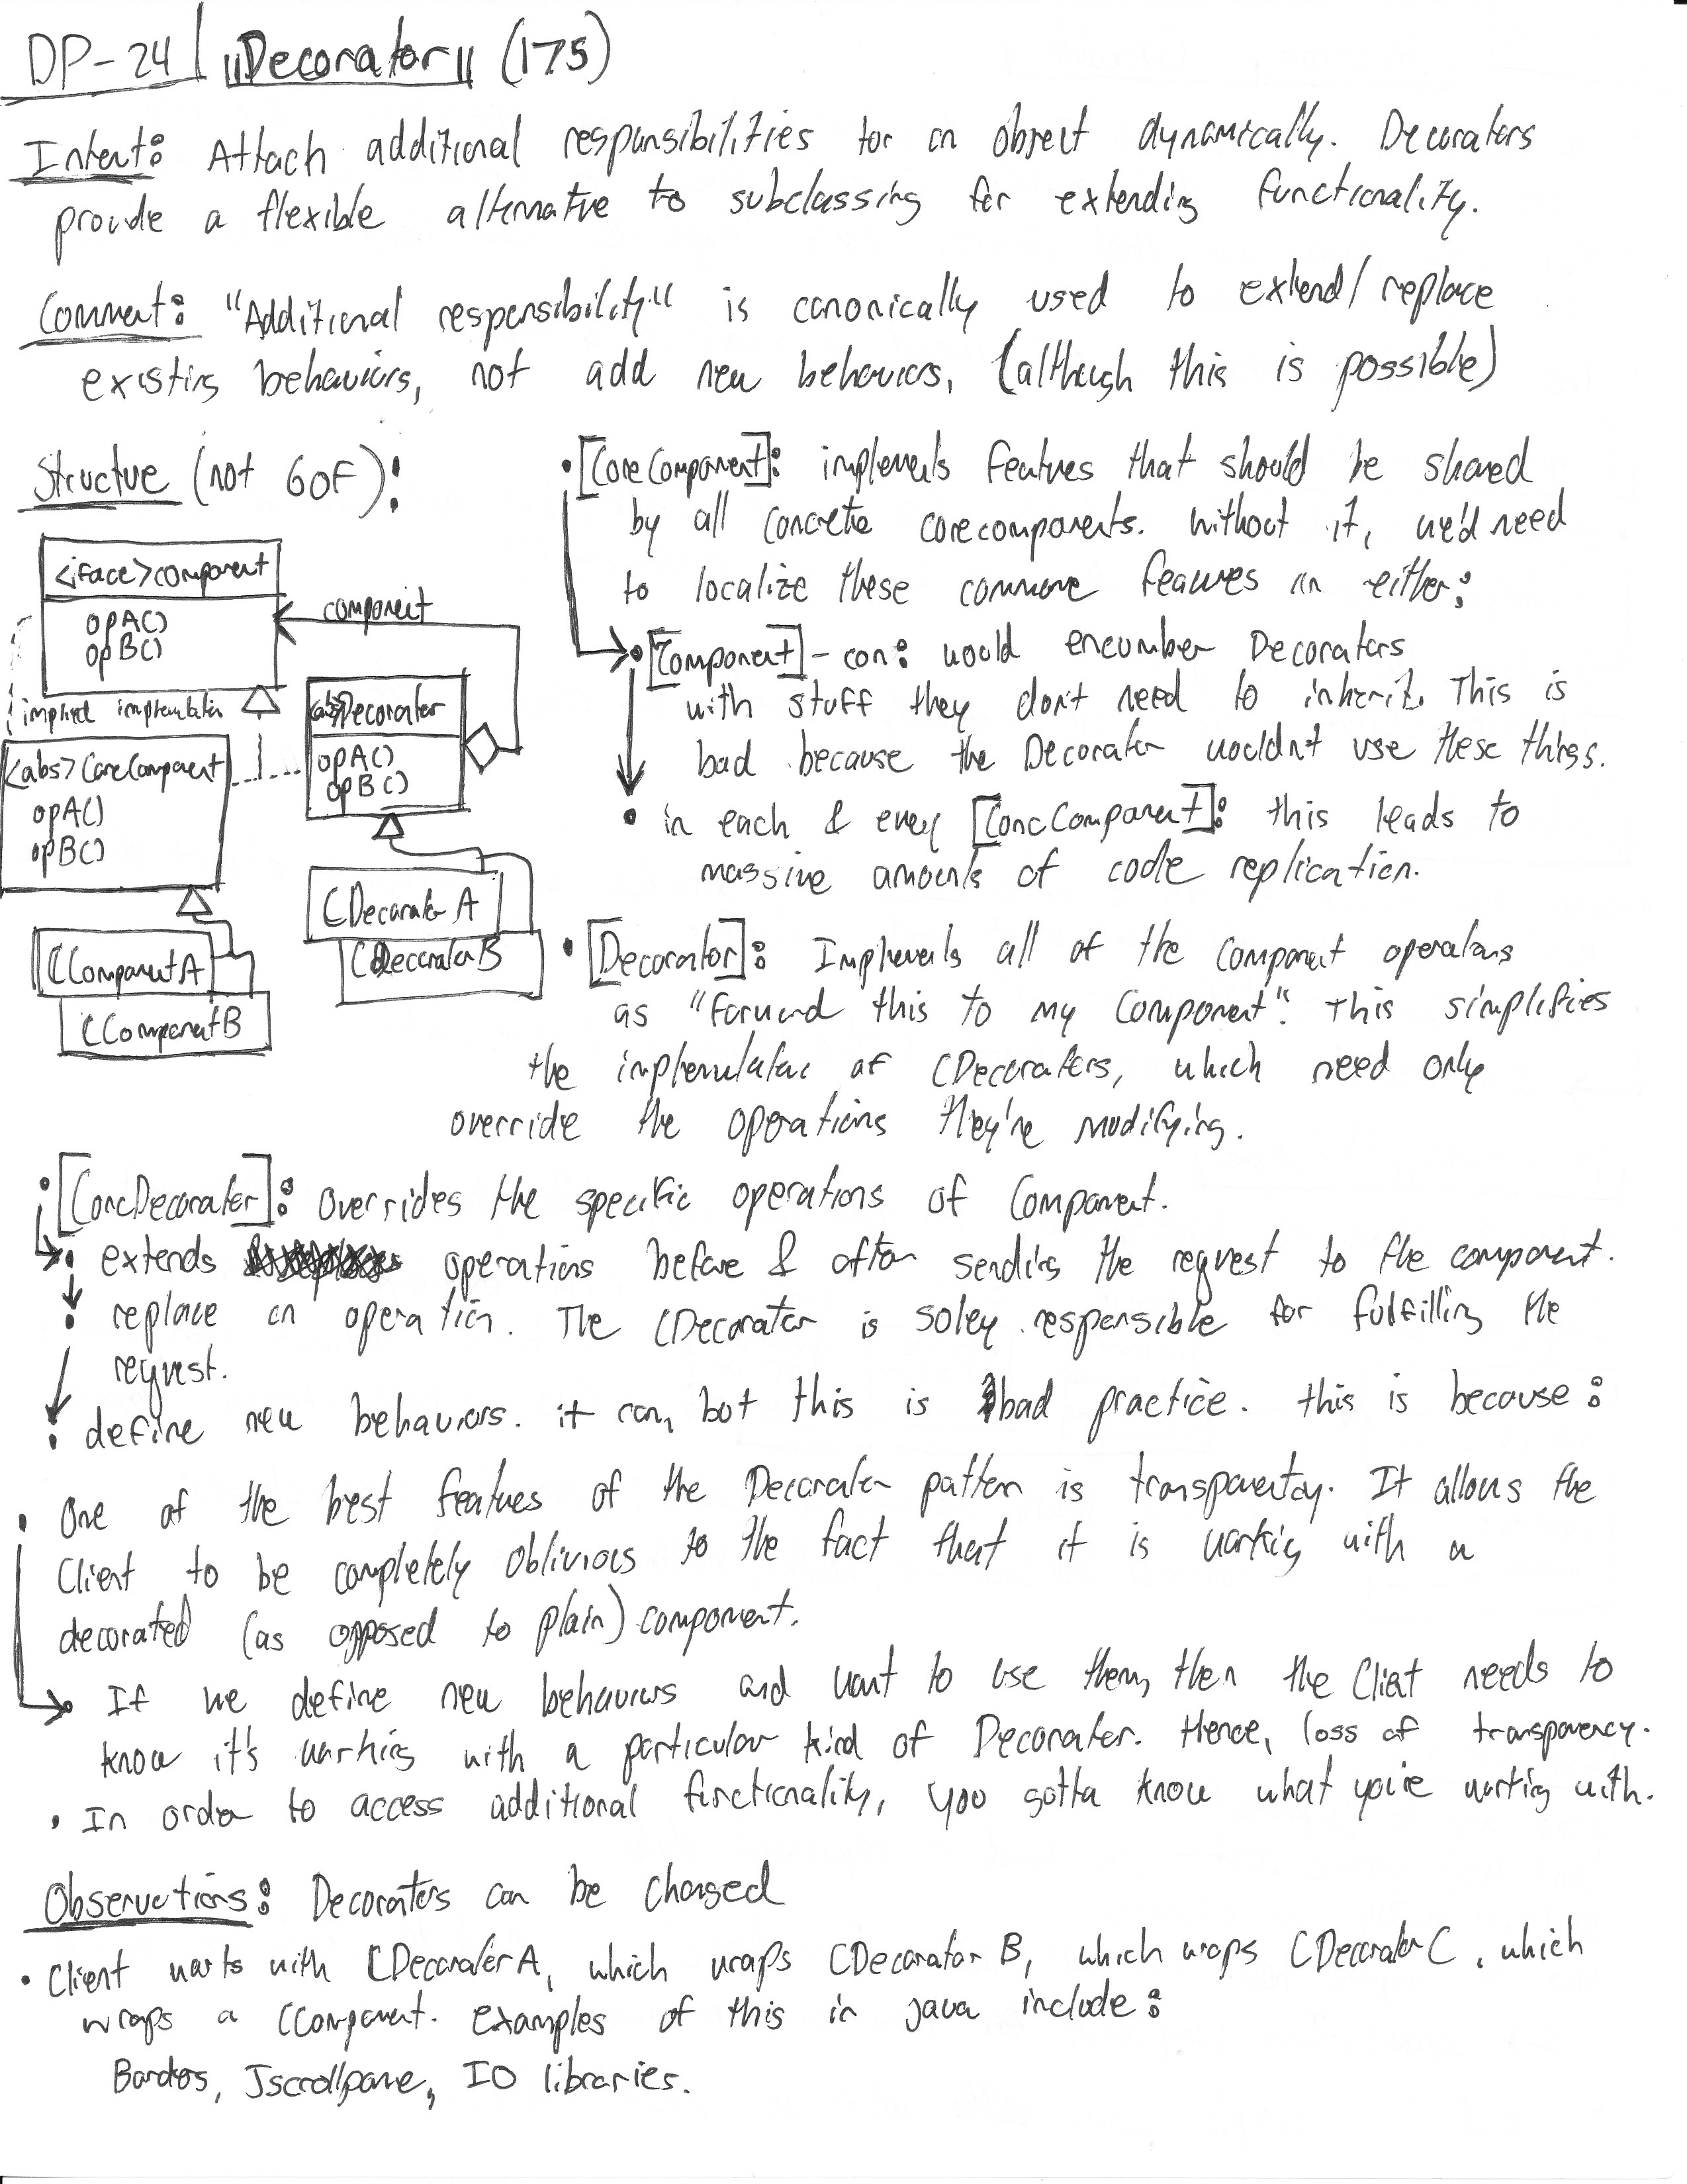 DP-24 "Decorator" (175)
Intent: Attach additional responsibilities for an object dynamically. Decorators
provide a flexible alternative to subclassing for extending functionality.
Comment: "Additional responsibility" is canonically used to extend/replace
existing behaviors, not add new behaviors, (although this is possible)
Structure (not GOF):
<iface>component
opA()
opB()
component
implied implementation
<abs>Decorator
opA()
opB()
<abs>CoreComponent
opA()
opB()
CDecorator A
CDecorator B
CComponentA
CComponentB
• [CoreComponent]: implements features that should be shared
by all concrete corecomponents. Without it, we'd need
to localize these common features in either:
• [Component] - con: would encumber Decorators
with stuff they don't need to inherit. This is
bad because the Decorator wouldn't use these things.
• in each & every [ConcComponent]: this leads to
massive amounts of code replication.
• [Decorator]: Implements all of the Component operations
as "forward this to my Component". This simplifies
the implementation of CDecorators, which need only
override the operations they're modifying.
• [ConcDecorator]: Overrides the specific operations of Component.
• extends operations before & after sending the request to the component.
• replace an operation. The CDecorator is soley responsible for fulfilling the
request.
• define new behaviors. it can, but this is bad practice. this is because:
• One of the best features of the Decorator pattern is transparentcy. It allows the
Client to be completely oblivious to the fact that it is working with a
decorated (as opposed to plain) component.
If we define new behaviors and want to use them, then the Client needs to
know it's working with a particular kind of Decorator. Hence, loss of transparency.
• In order to access additional functionality, you gotta know what you're working with.
Observations: Decorators can be changed
• Client works with CDecorator A, which wraps CDecorator B, which wraps CDecorator C, which
wraps a CComponent. Examples of this in java include:
Borders, Jscrollpane, IO libraries.